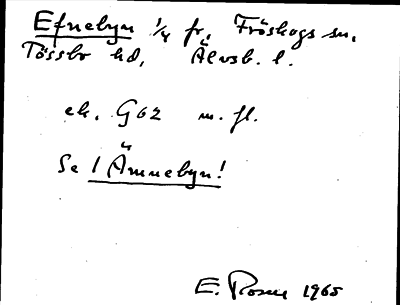 Efnebyn 1/4 fr, Fröskogs sn.
Tössbo hd, Älvsb. l.
ek. G62 m. fl.
Se 1 Ämnebyn!
E. Rosen 1965